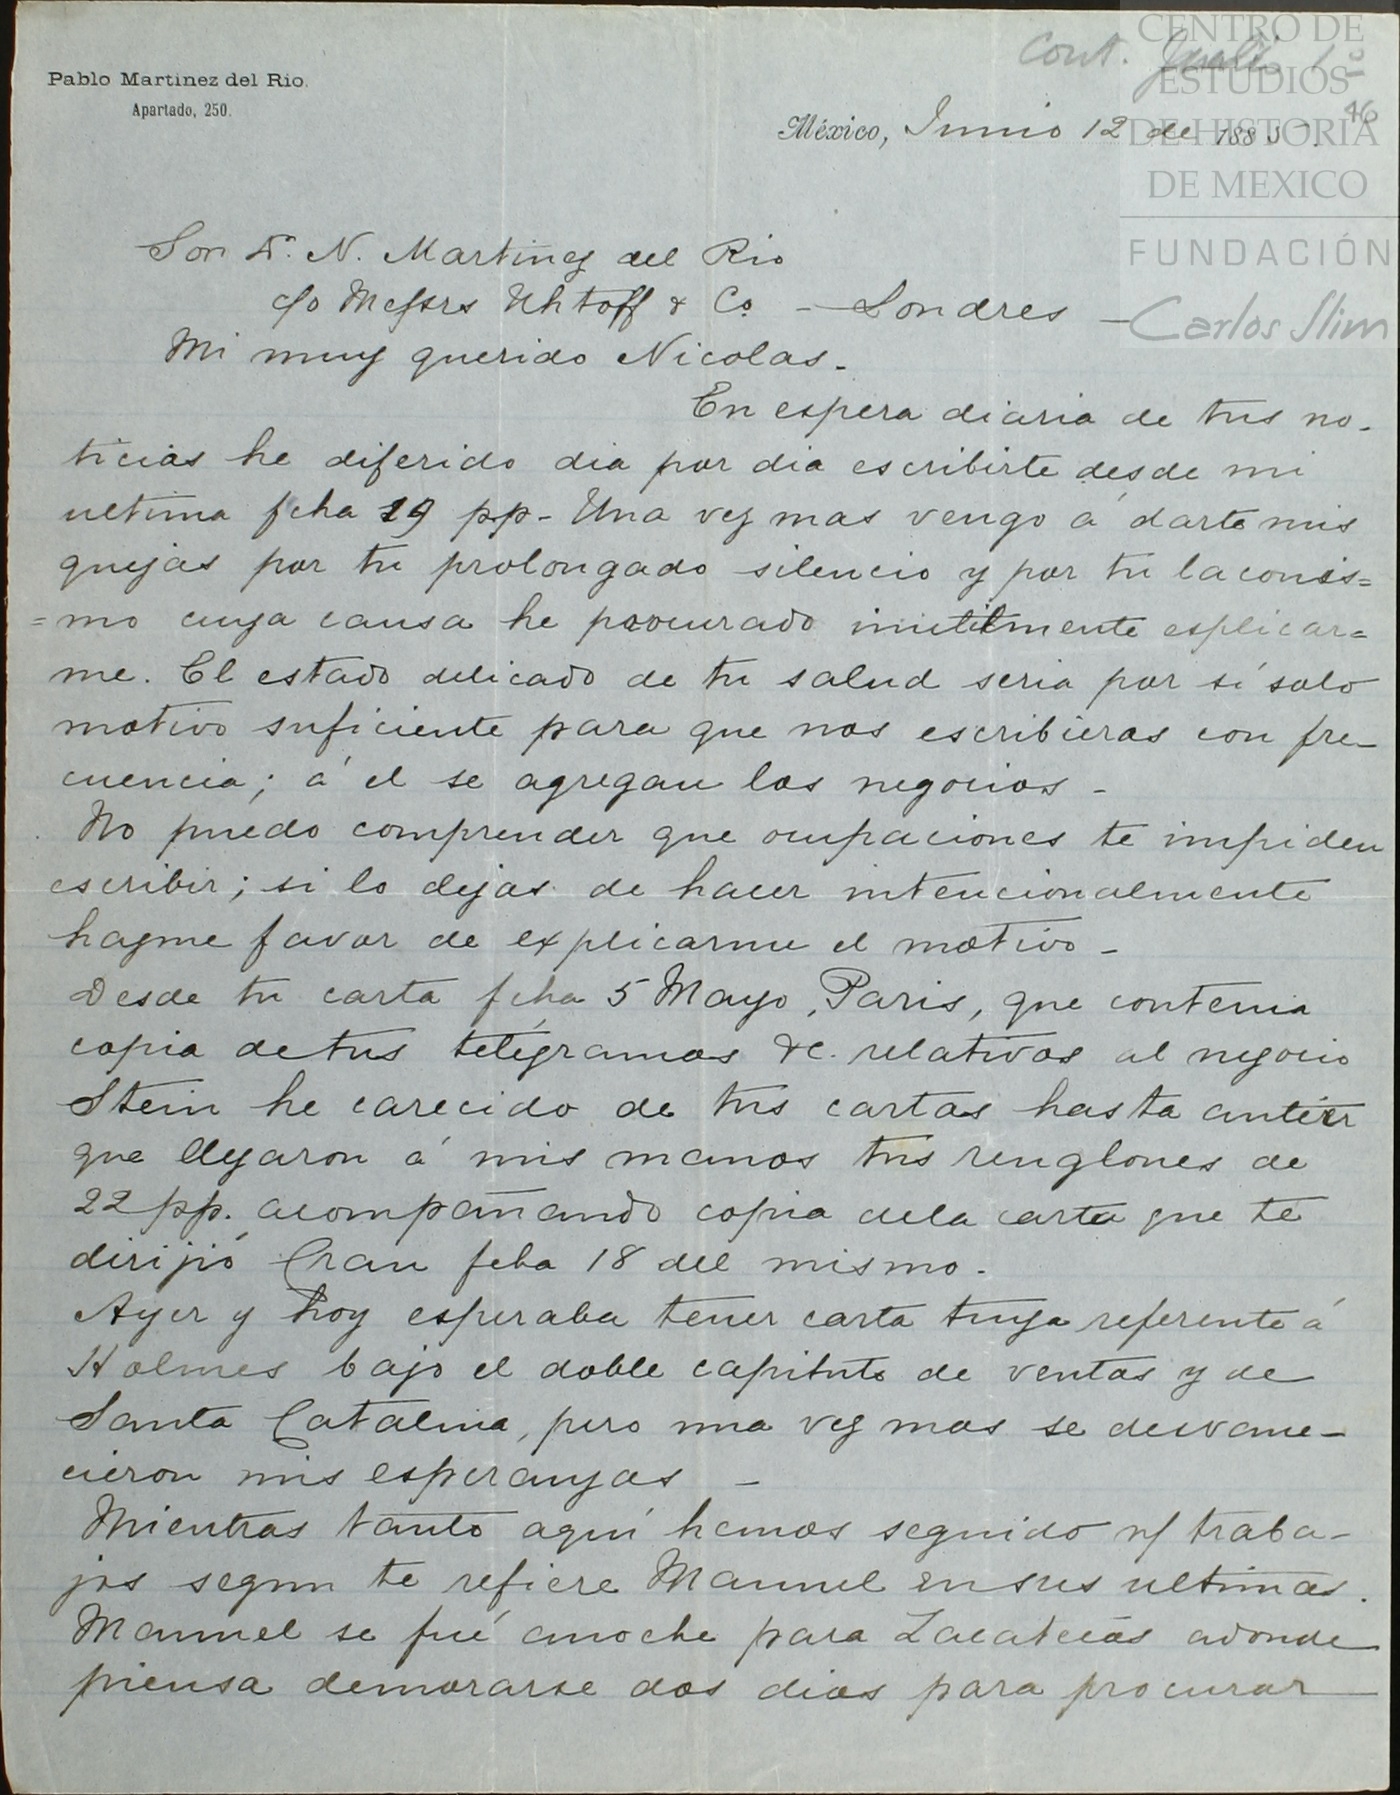 Cont. Julio 1º
46
Pablo Martinez del Rio.
Apartado, 250.
México, Junio 12 de 1885.
Sor Dn. N. Martinez del Rio
c/o Messrs Uhtoff & Co. - Londres -
Mi muy querido Nicolas.
En espera diaria de tus no-
ticias he diferido dia por dia escribirte desde mi
ultima fcha 29 pp- Una vez mas vengo á darte mis
quejas por tu prolongado silencio y por tu laconis=
=mo cuya causa he procurado inutilmente esplicar=
me. El estado delicado de tu salud seria por sí solo
motivo suficiente para que nos escribieras con fre-
cuencia; á el se agregan los negocios -
No puedo comprender que ocupaciones te impiden
escribir; si lo dejas de hacer intencionalmente
hagme favor de explicarme el motivo -
Desde tu carta fcha 5 Mayo, Paris, que contenia
copia de tus telegramas &c. relativos al negocio
Stein he carecido de tus cartas hasta antier
que llegaron á mis manos tus renglones de
22 pp. acompañando copia dela carta que te
dirijió Gran fcha 18 del mismo.
Ayer y hoy esperaba tener carta tuya referente á
Holmes bajo el doble capitulo de ventas y de
Santa Catalina, pero una vez mas se desvane-
cieron mis esperanzas -
Mientras tanto aquí hemos seguido n/ traba-
jos segun te refiere Manuel en sus ultimas.
Manuel se fué anoche para Zacatecas adonde
piensa demorarse dos dias para procurar
CENTRO DE
ESTUDIOS
DE HISTORIA
DE MEXICO
FUNDACIÓN
Carlos Slim